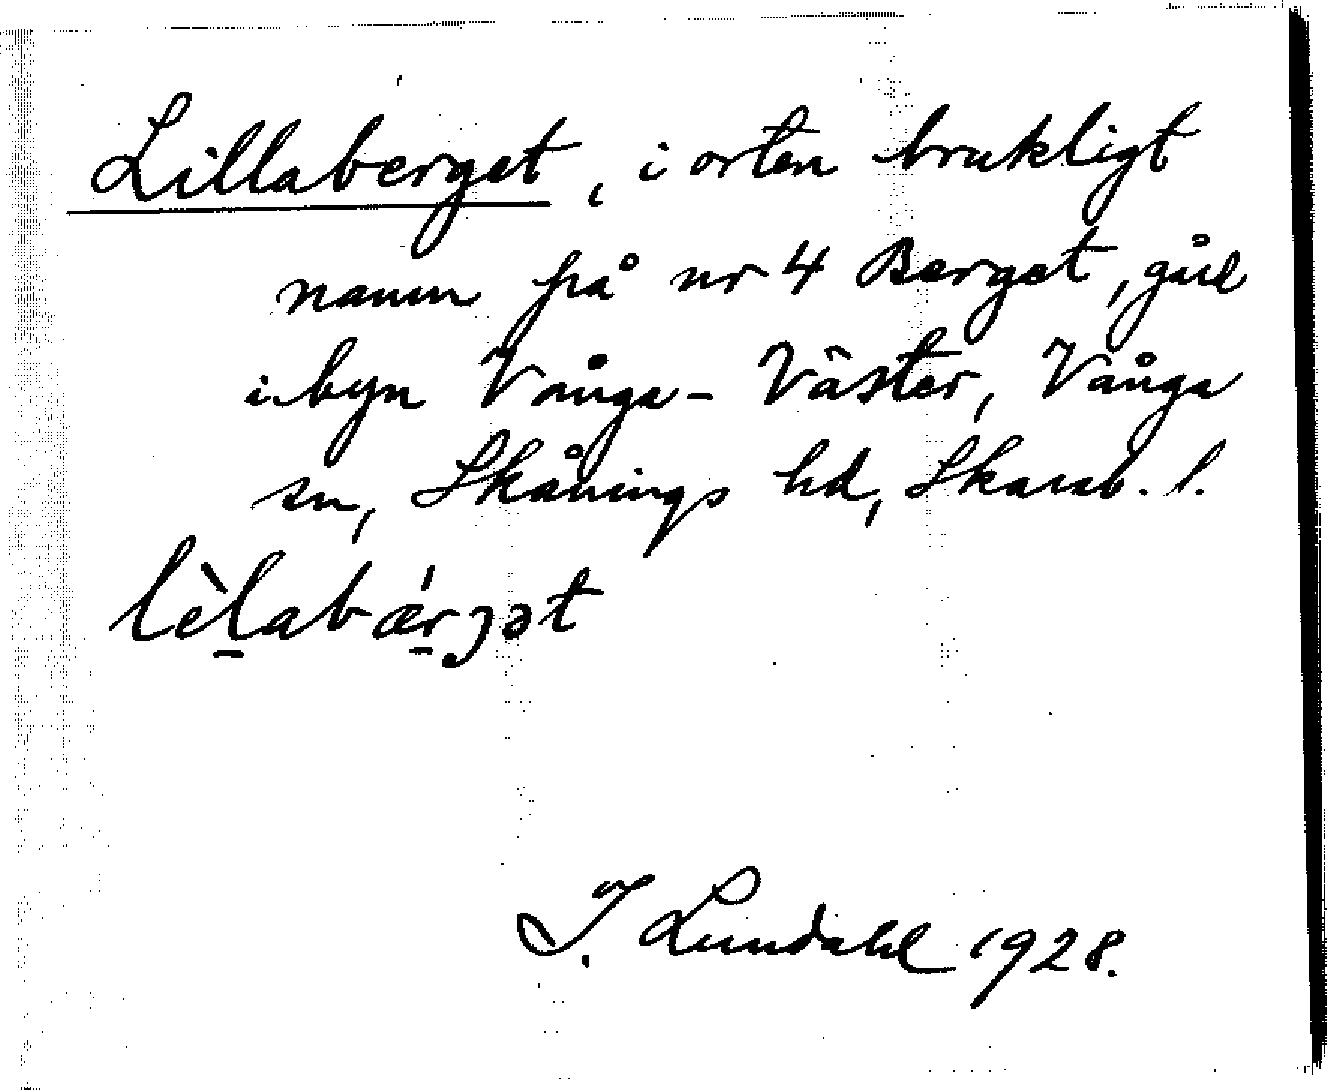 Lillaberget, i orten brukligt
namn på nr 4 Berget, gård
i byn Vånga-Väster, Vånga
sn, Skånings hd, Skarab. l.
lèl̠abǽr̠ȷət
I. Lundahl 1928.